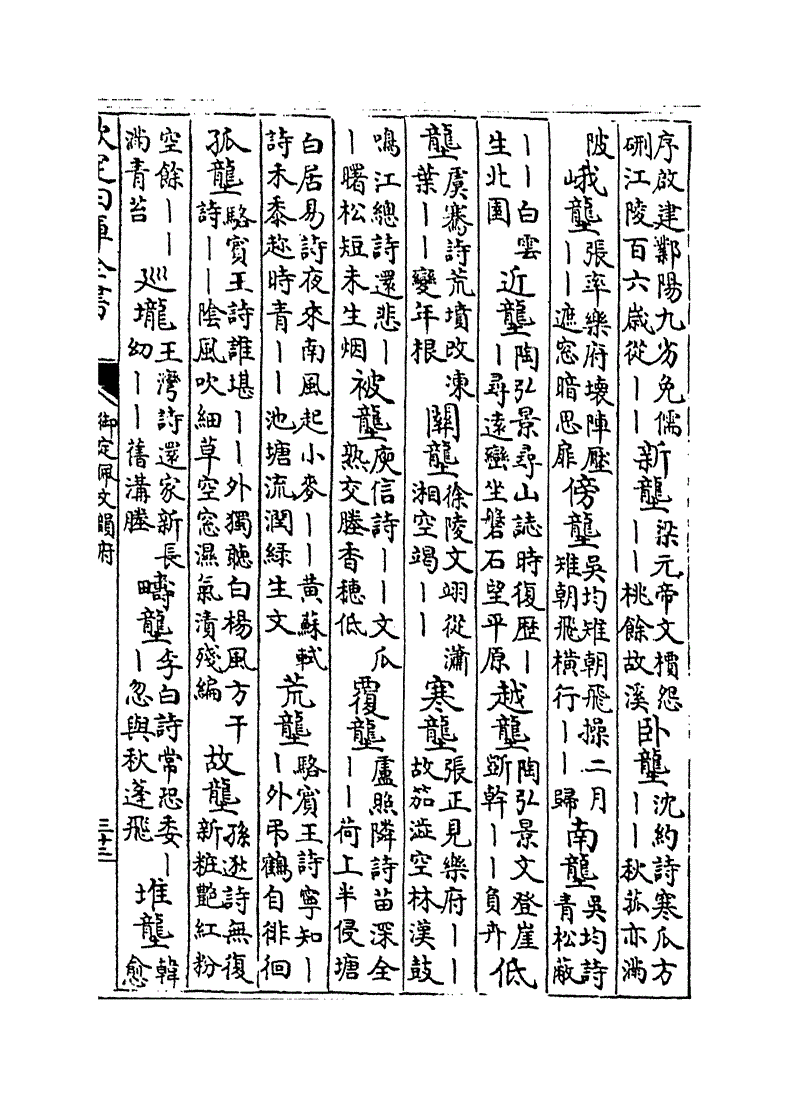 序啟建鄴陽九劣免儒硎江陵百六歲從丨丨新壟梁元帝文檟怨丨丨桃餘故溪卧壟沈約詩寒瓜方丨丨秋菰亦滿
陂峨壟張率樂府壞陣壓丨丨遮窓暗思扉傍壟吳均雉朝飛操二月雉朝飛橫行丨丨歸南壟吳均詩青松蔽
丨丨白雲生北園近壟陶弘景尋山誌時復歴丨丨尋遠巒坐磐石望平原越壟陶弘景文登崖斲幹丨丨負卉低
壟虞騫詩荒墳改凍葉丨丨變年根闗壟徐陵文翊從瀟湘空竭丨丨寒壟張正見樂府丨丨故茄澁空林漢鼓
鳴江總詩還悲丨丨曙松短未生烟被壟庾信詩丨丨文瓜熟交塍香穗低覆壟盧照隣詩苗深全丨丨荷上半侵塘
白居易詩夜來南風起小麥丨丨黃蘇軾詩禾黍趂時青丨丨池塘流潤綠生文荒壟駱賓王詩寧知丨丨外弔鶴自徘徊
孤壟駱賓王詩誰堪丨丨外獨聽白楊風方干詩丨丨陰風吹細草空窓濕氣漬殘編故壟孫逖詩無復新粧艷紅粉
空餘丨丨滿青苔巡壠王灣詩還家新長幼丨丨舊溝塍疇壟李白詩常恐委丨丨忽與秋蓬飛堆壟韓愈
欽定四庫全書
御定佩文韻府
三十三